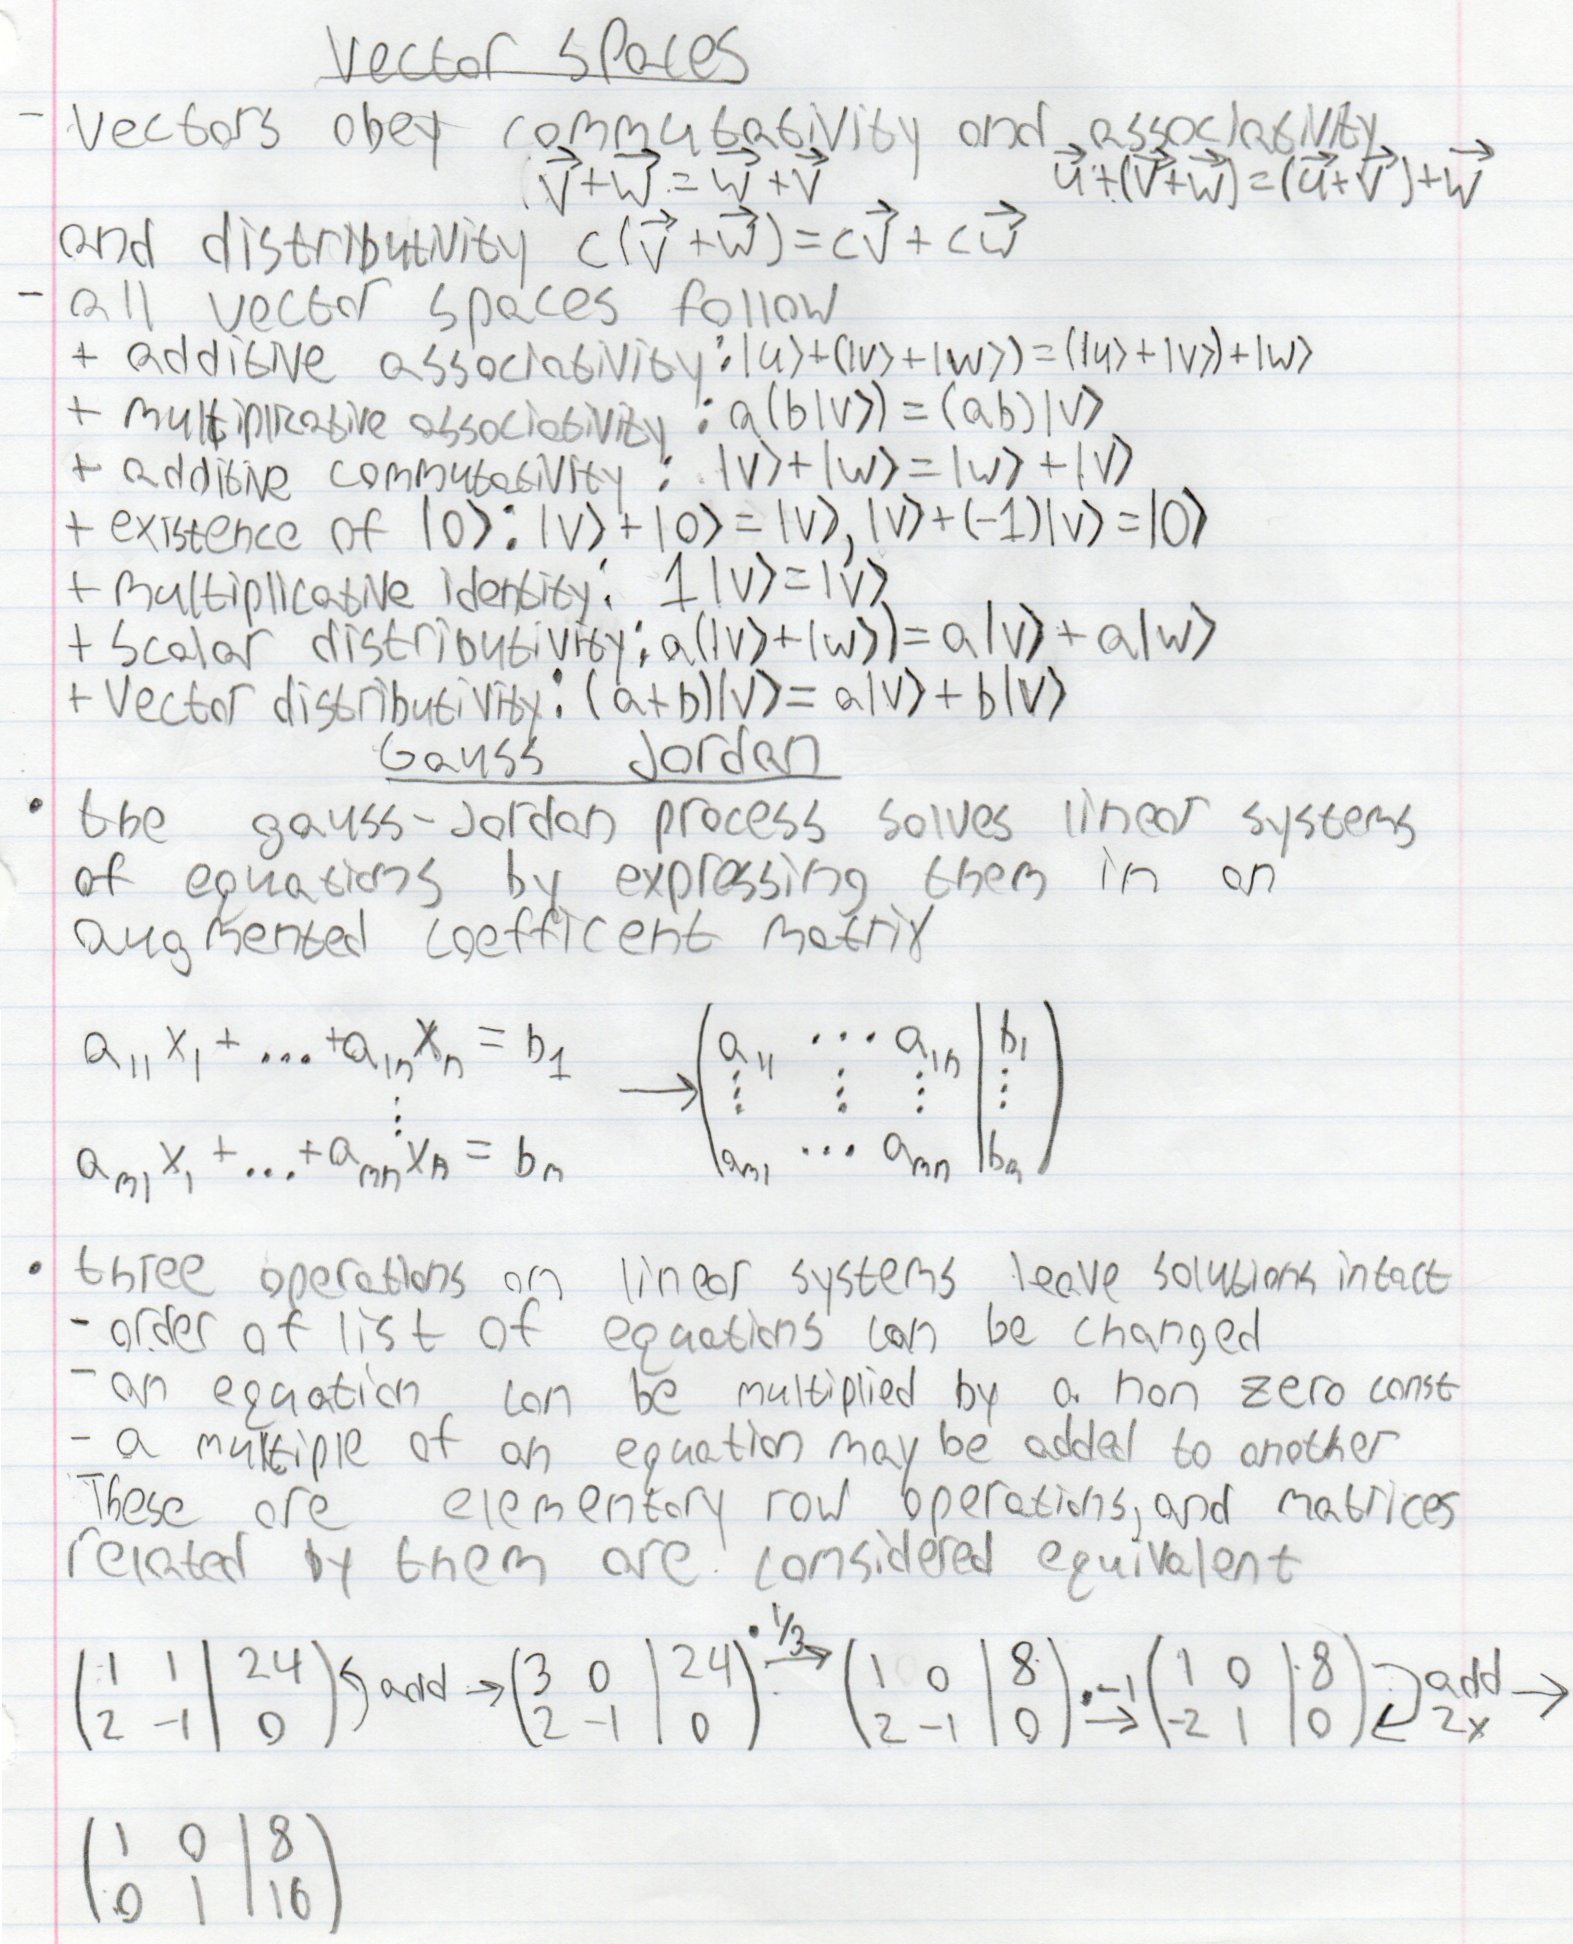 Vector spaces
- vectors obey commutativity and associativity
v⃗+w⃗=w⃗+v⃗ u⃗+(v⃗+w⃗)=(u⃗+v⃗)+w⃗
and distributivity c(v⃗+w⃗)=cv⃗+cw⃗
- all vector spaces follow
+ additive associativity: |u⟩+(|v⟩+|w⟩)=(|u⟩+|v⟩)+|w⟩
+ multiplicative associativity: a(b|v⟩)=(ab)|v⟩
+ additive commutativity: |v⟩+|w⟩=|w⟩+|v⟩
+ existence of |0⟩: |v⟩+|0⟩=|v⟩, |v⟩+(-1)|v⟩=|0⟩
+ multiplicative identity: 1|v⟩=|v⟩
+ scalar distributivity: a(|v⟩+|w⟩)=a|v⟩+a|w⟩
+ vector distributivity: (a+b)|v⟩=a|v⟩+b|v⟩
Gauss Jordan
• the gauss-Jordan process solves linear systems
of equations by expressing them in an
augmented coefficent matrix
a₁₁x₁+...+a₁ₙxₙ=b₁ → (a₁₁ ⋯ a₁ₙ | b₁)
⋮ ⋮ ⋮ ⋮ | ⋮
aₘ₁x₁+...+aₘₙxₙ=bₘ (aₘ₁ ⋯ aₘₙ | bₘ)
• three operations on linear systems leave solutions intact
- order of list of equations can be changed
- an equation can be multiplied by a non zero const
- a multiple of an equation may be added to another
These are elementary row operations, and matrices
related by them are considered equivalent
(1 1 | 24) add → (3 0 | 24) ·1/3 → (1 0 | 8) ·-1 → (1 0 | 8) add →
(2 -1 | 0) (2 -1 | 0) (2 -1 | 0) (-2 1 | 0) 2x
(1 0 | 8)
(0 1 | 16)